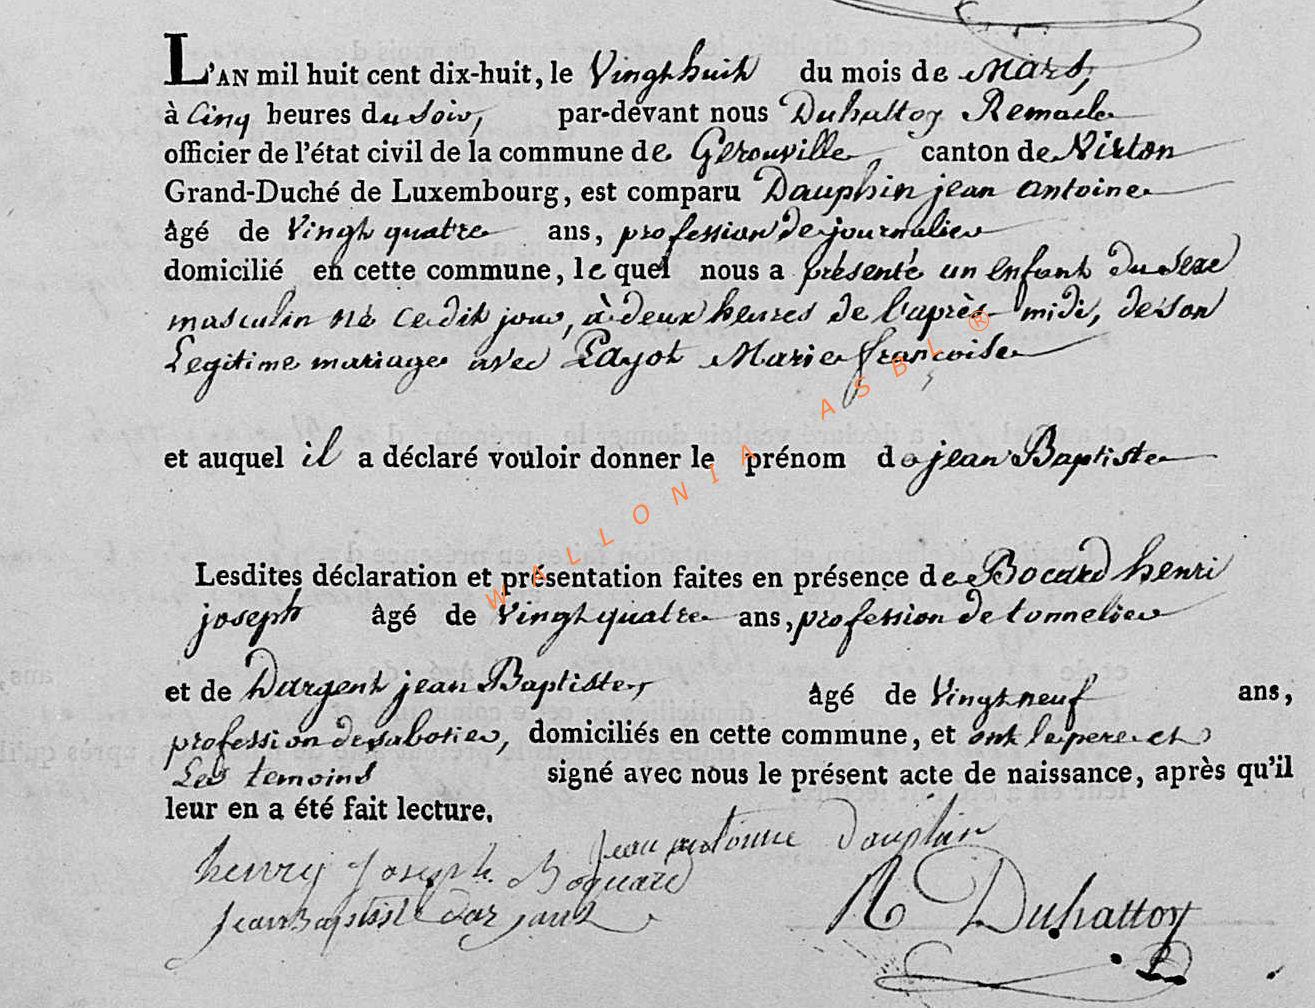 L'AN mil huit cent dix-huit, le Vingt huit du mois de Mars,
à Cinq heures du soir, par-devant nous Duhattoy Remacle
officier de l'état civil de la commune de Gerouville, canton de Virton
Grand-Duché de Luxembourg, est comparu Dauphin jean antoine
âgé de Vingt quatre ans, profession de journalier
domicilié en cette commune, le quel nous a présenté un enfant du sexe
masculin né cedit jour, à deux heures de l'après midi, de son
Legitime mariage avec Payot Marie françoise
et auquel il a déclaré vouloir donner le prénom de jean Baptiste
Lesdites déclaration et présentation faites en présence de Bocard henri
joseph âgé de Vingt quatre ans, profession de tonnelier
et de Dargent jean Baptiste, âgé de Vingt neuf ans,
profession de sabotier, domiciliés en cette commune, et ont le pere et
Les temoins signé avec nous le présent acte de naissance, après qu'il
leur en a été fait lecture.
jean antoine Dauphin
henry Joseph Boquard
Jean Baptiste darjant
R Duhattoy
WALLONIA ASBL ®